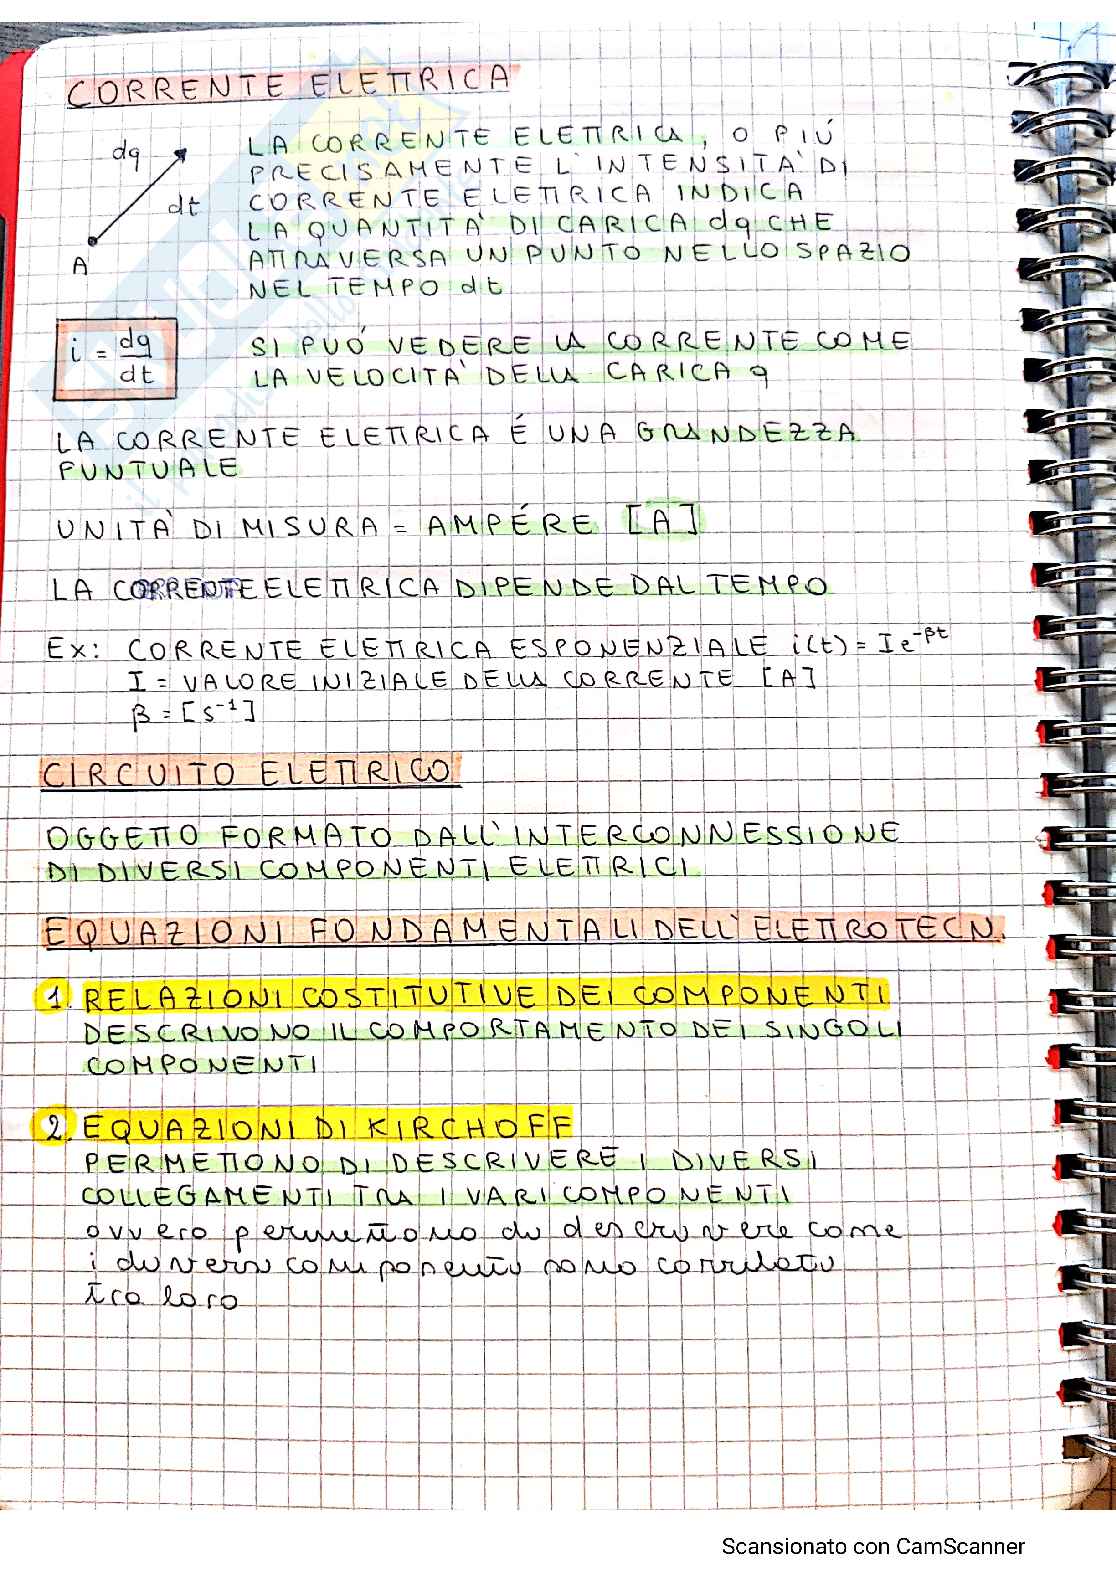 CORRENTE ELETTRICA
dq
dt
A
LA CORRENTE ELETTRICA, O PIÚ
PRECISAMENTE L'INTENSITA' DI
CORRENTE ELETTRICA INDICA
LA QUANTITA' DI CARICA dq CHE
ATTRAVERSA UN PUNTO NELLO SPAZIO
NEL TEMPO dt
i = dq/dt
SI PUÓ VEDERE LA CORRENTE COME
LA VELOCITA' DELLA CARICA q
LA CORRENTE ELETTRICA É UNA GRANDEZZA
PUNTUALE
UNITA' DI MISURA = AMPÉRE [A]
LA CORRENTE ELETTRICA DIPENDE DAL TEMPO
Ex: CORRENTE ELETTRICA ESPONENZIALE i(t) = I e^-βt
I = VALORE INIZIALE DELLA CORRENTE [A]
β = [s^-1]
CIRCUITO ELETTRICO
OGGETTO FORMATO DALL'INTERCONNESSIONE
DI DIVERSI COMPONENTI ELETTRICI
EQUAZIONI FONDAMENTALI DELL'ELETTROTECN.
1. RELAZIONI COSTITUTIVE DEI COMPONENTI
DESCRIVONO IL COMPORTAMENTO DEI SINGOLI
COMPONENTI
2. EQUAZIONI DI KIRCHOFF
PERMETTONO DI DESCRIVERE I DIVERSI
COLLEGAMENTI TRA I VARI COMPONENTI
ovvero permettono di descrivere come
i diversi componenti sono correlati
tra loro
Scansionato con CamScanner